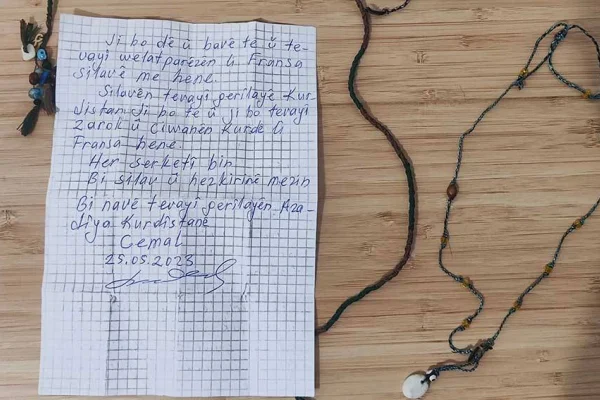 Ji bo dê û bavê te û te-
vayî welatparêzên li Fransa
silavê me hene.
Silavên tevayî gerîlayê Kur-
distan ji bo te û ji bo tevayî
zarok û Ciwanên Kurde li
Fransa hene.
Her serketî bin
Bi silav û hezkirinê mezin
Bi navê tevayî gerîlayên Aza-
dîya Kurdistanê
Cemal
25.05.2023